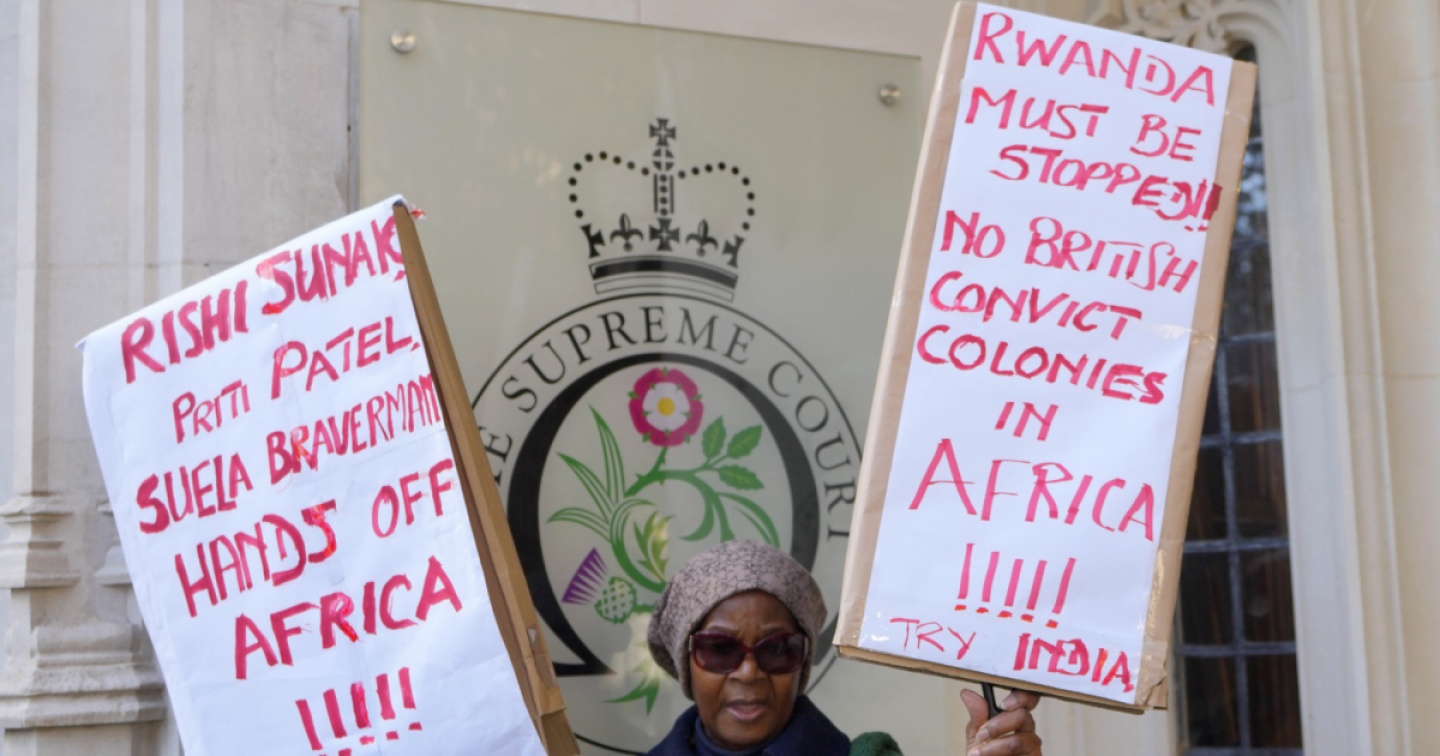 RISHI SUNAK,
PRITI PATEL.
SUELA BRAVERMAN
HANDS OFF
AFRICA
!!!!!
THE SUPREME COURT
RWANDA
MUST BE
STOPPED!!
NO BRITISH
CONVICT
COLONIES
IN
AFRICA
!!!!!
TRY INDIA